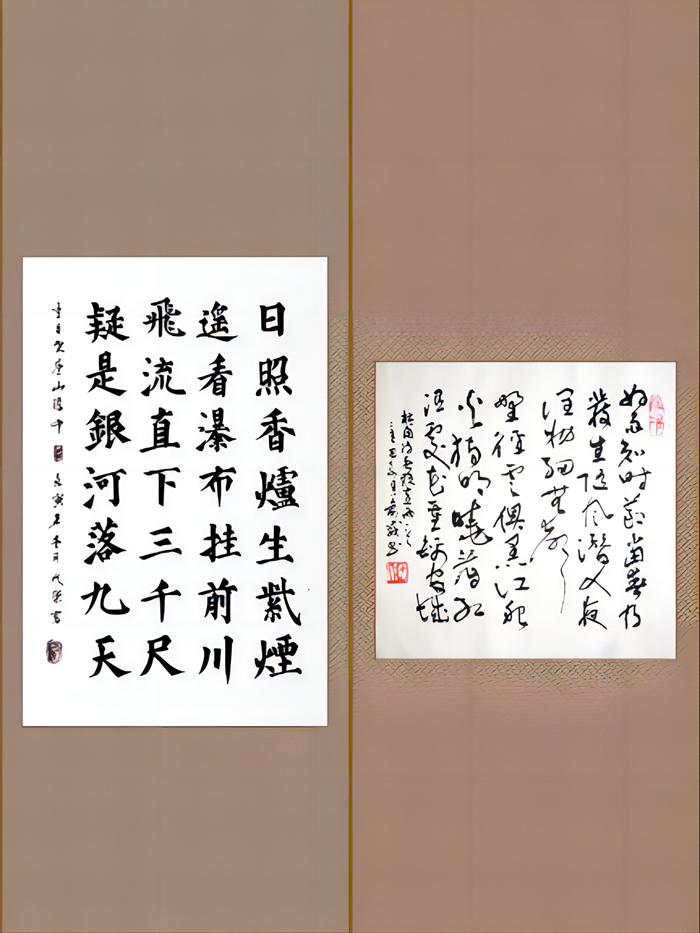 日照香爐生紫煙
遙看瀑布挂前川
飛流直下三千尺
疑是銀河落九天
好雨知時節當春乃
發生隨風潛入夜
潤物細無聲
野徑雲俱黑江船
火獨明曉看紅
濕處花重錦官城